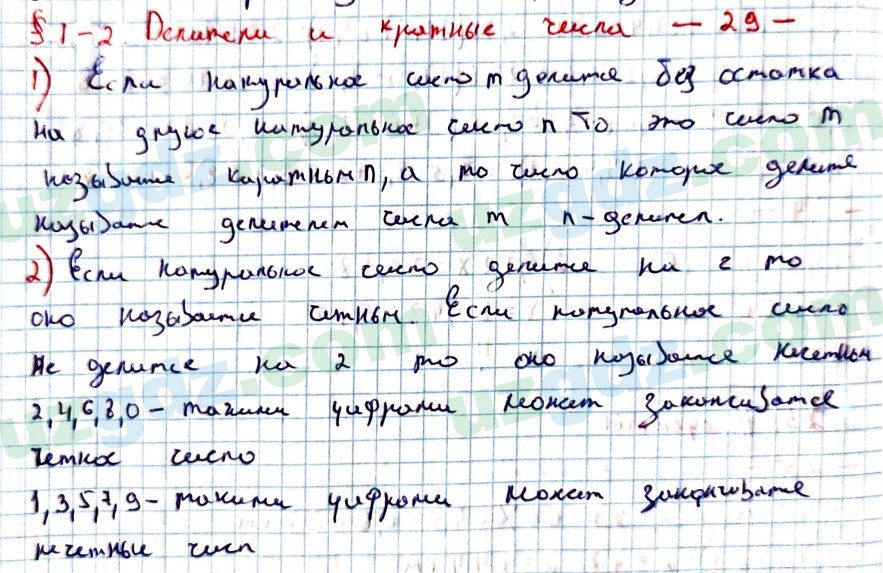 § 1-2 Делители и кратные числа — 29 —
1) Если натуральное число m делится без остатка
на другое натуральное число n то это число m
называется каратным n, а то число которое делите
называте делителем числа m n-делител.
2) Если натуральное число делится на 2 то
оно называется четным. Если натуральное число
не делится на 2 то оно называется нечетным
2,4,6,8,0 – такими цифрами может заканчиватся
четное число
1,3,5,7,9 – такими цифрами может заканчивате
нечетные числ
uzgdz.com